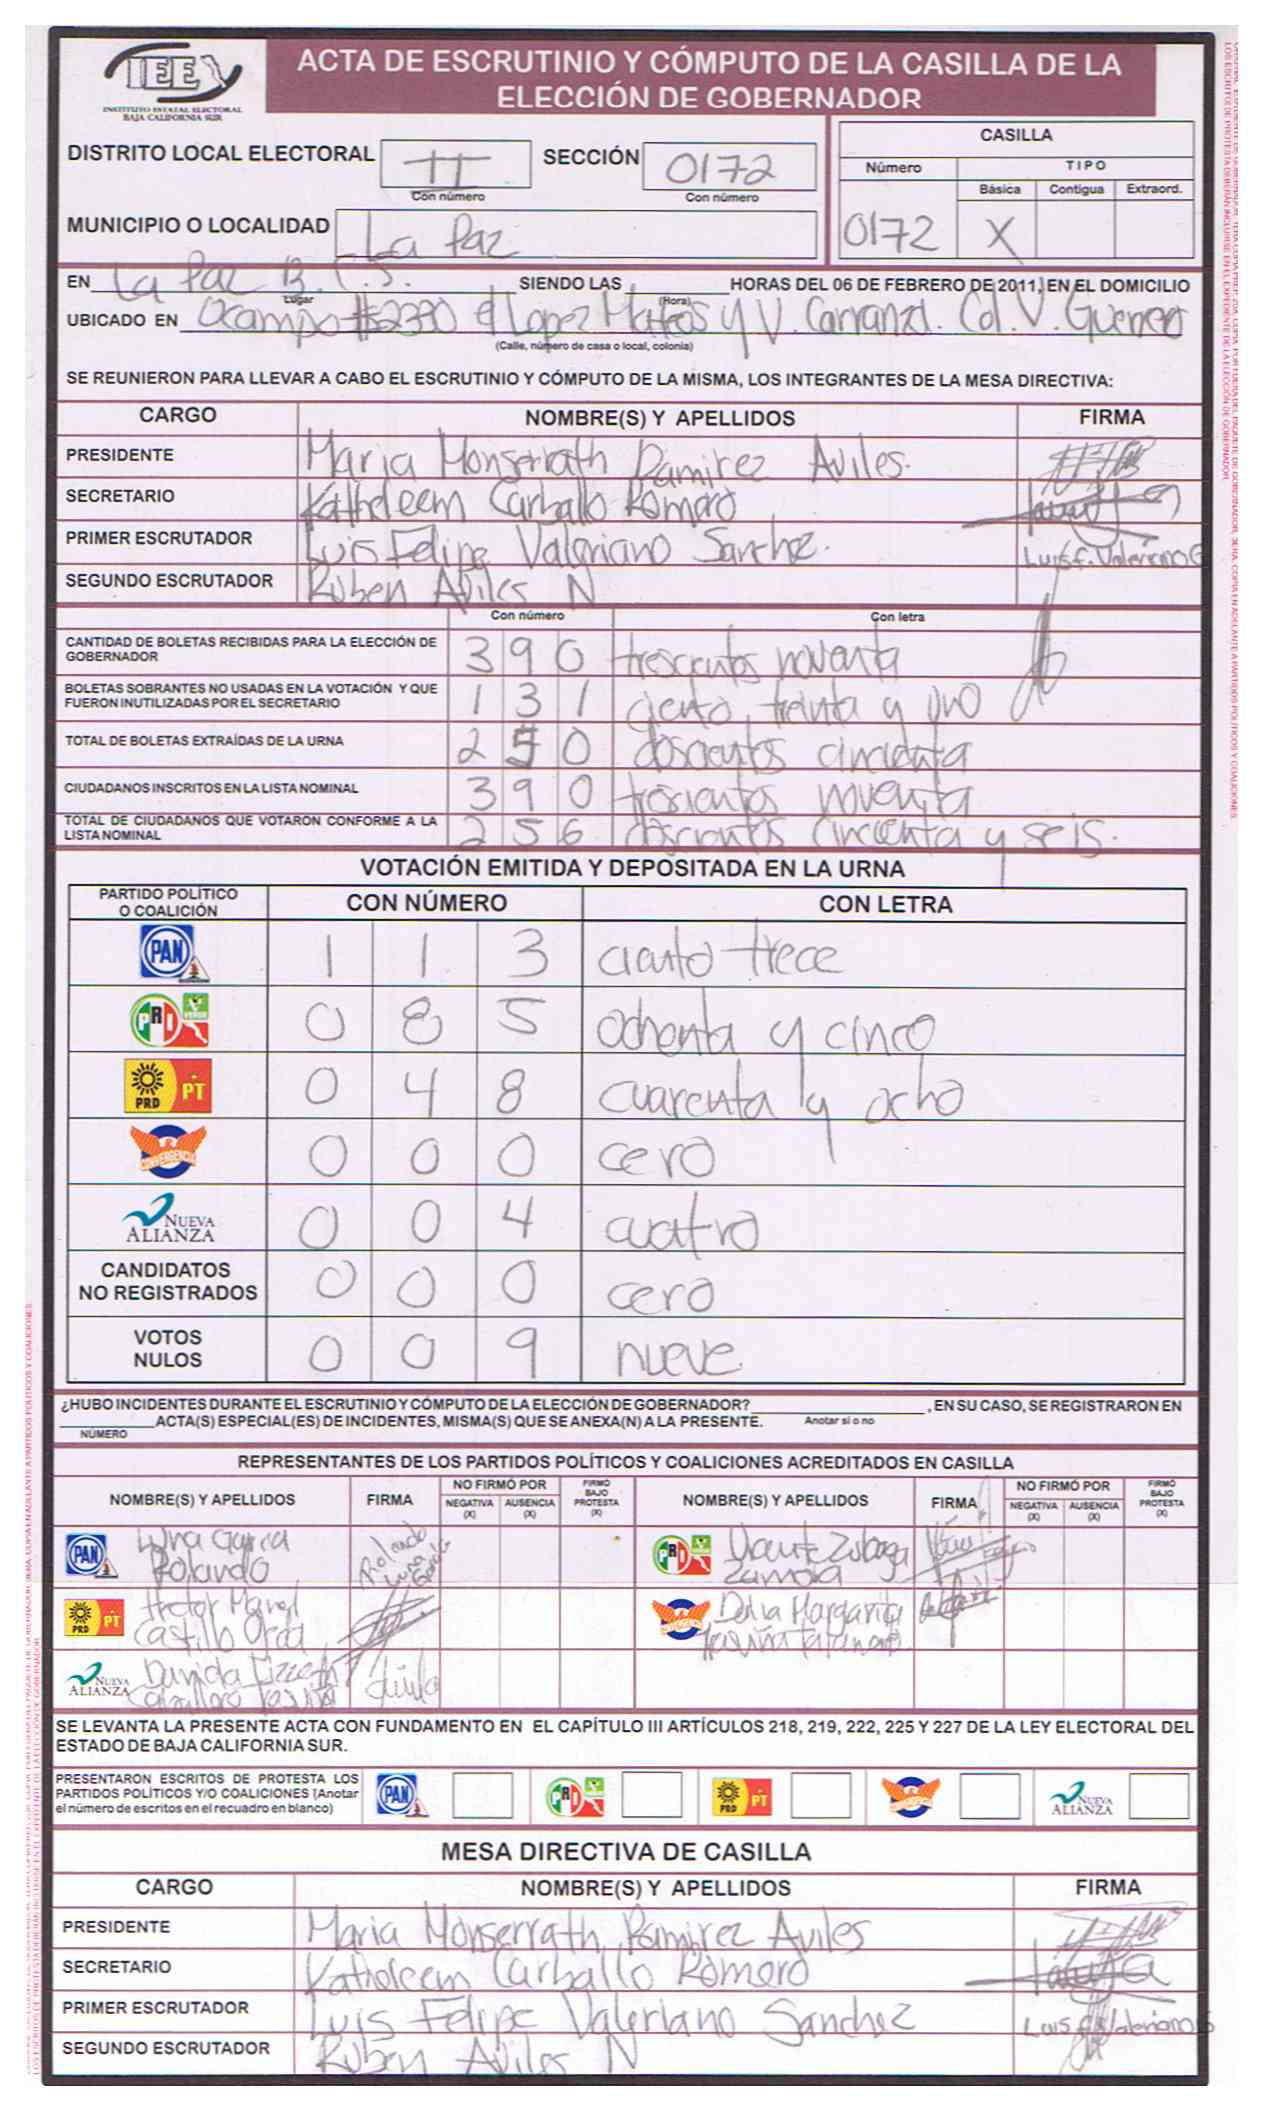 IEEX
INSTITUTO ESTATAL ELECTORAL
BAJA CALIFORNIA SUR
ACTA DE ESCRUTINIO Y CÓMPUTO DE LA CASILLA DE LA
ELECCIÓN DE GOBERNADOR
DISTRITO LOCAL ELECTORAL II SECCIÓN 0172
Con número Con número
MUNICIPIO O LOCALIDAD La Paz
CASILLA
Número TIPO
Básica Contigua Extraord.
0172 X
EN La Paz B.C.S. SIENDO LAS HORAS DEL 06 DE FEBRERO DE 2011, EN EL DOMICILIO
Lugar (Hora)
UBICADO EN Ocampo #2330 e/ Lopez Mateos y V. Carranza. Col. V. Guerrero
(Calle, número de casa o local, colonia)
SE REUNIERON PARA LLEVAR A CABO EL ESCRUTINIO Y CÓMPUTO DE LA MISMA, LOS INTEGRANTES DE LA MESA DIRECTIVA:
CARGO NOMBRE(S) Y APELLIDOS FIRMA
PRESIDENTE Maria Monserrath Ramirez Aviles.
SECRETARIO Katheleem Carballo Romero
PRIMER ESCRUTADOR Luis Felipe Valeriano Sanchez. Luis F. Valeriano S
SEGUNDO ESCRUTADOR Ruben Aviles N
Con número Con letra
CANTIDAD DE BOLETAS RECIBIDAS PARA LA ELECCIÓN DE
GOBERNADOR 390 trescientos noventa
BOLETAS SOBRANTES NO USADAS EN LA VOTACIÓN Y QUE
FUERON INUTILIZADAS POR EL SECRETARIO 131 ciento, treinta y uno
TOTAL DE BOLETAS EXTRAÍDAS DE LA URNA 250 doscientos cincuenta
CIUDADANOS INSCRITOS EN LA LISTA NOMINAL 390 trescientos noventa
TOTAL DE CIUDADANOS QUE VOTARON CONFORME A LA
LISTA NOMINAL 256 doscientos cincuenta y seis.
VOTACIÓN EMITIDA Y DEPOSITADA EN LA URNA
PARTIDO POLÍTICO
O COALICIÓN CON NÚMERO CON LETRA
PAN 1 1 3 ciento trece
PRI VERDE 0 8 5 ochenta y cinco
PRD PT 0 4 8 cuarenta y ocho
CONVERGENCIA 0 0 0 cero
NUEVA ALIANZA 0 0 4 cuatro
CANDIDATOS
NO REGISTRADOS 0 0 0 cero
VOTOS
NULOS 0 0 9 nueve
¿HUBO INCIDENTES DURANTE EL ESCRUTINIO Y CÓMPUTO DE LA ELECCIÓN DE GOBERNADOR? , EN SU CASO, SE REGISTRARON EN
ACTA(S) ESPECIAL(ES) DE INCIDENTES, MISMA(S) QUE SE ANEXA(N) A LA PRESENTE. Anotar si o no
NÚMERO
REPRESENTANTES DE LOS PARTIDOS POLÍTICOS Y COALICIONES ACREDITADOS EN CASILLA
NOMBRE(S) Y APELLIDOS FIRMA NO FIRMÓ POR NEGATIVA (X) AUSENCIA (X) FIRMÓ BAJO PROTESTA (X) NOMBRE(S) Y APELLIDOS FIRMA NO FIRMÓ POR NEGATIVA (X) AUSENCIA (X) FIRMÓ BAJO PROTESTA (X)
PAN Luna Garcia Rolando Rolando Luna Garcia PRI Vicente Zamora
PRD PT Hector Castillo CONVERGENCIA Delia Margarita
NUEVA ALIANZA
SE LEVANTA LA PRESENTE ACTA CON FUNDAMENTO EN EL CAPÍTULO III ARTÍCULOS 218, 219, 222, 225 Y 227 DE LA LEY ELECTORAL DEL
ESTADO DE BAJA CALIFORNIA SUR.
PRESENTARON ESCRITOS DE PROTESTA LOS
PARTIDOS POLÍTICOS Y/O COALICIONES (Anotar
el número de escritos en el recuadro en blanco) PAN PRI PRD PT CONVERGENCIA NUEVA ALIANZA
MESA DIRECTIVA DE CASILLA
CARGO NOMBRE(S) Y APELLIDOS FIRMA
PRESIDENTE Maria Monserrath Ramirez Aviles
SECRETARIO Katheleem Carballo Romero
PRIMER ESCRUTADOR Luis Felipe Valeriano Sanchez Luis F. Valeriano S
SEGUNDO ESCRUTADOR Ruben Aviles N